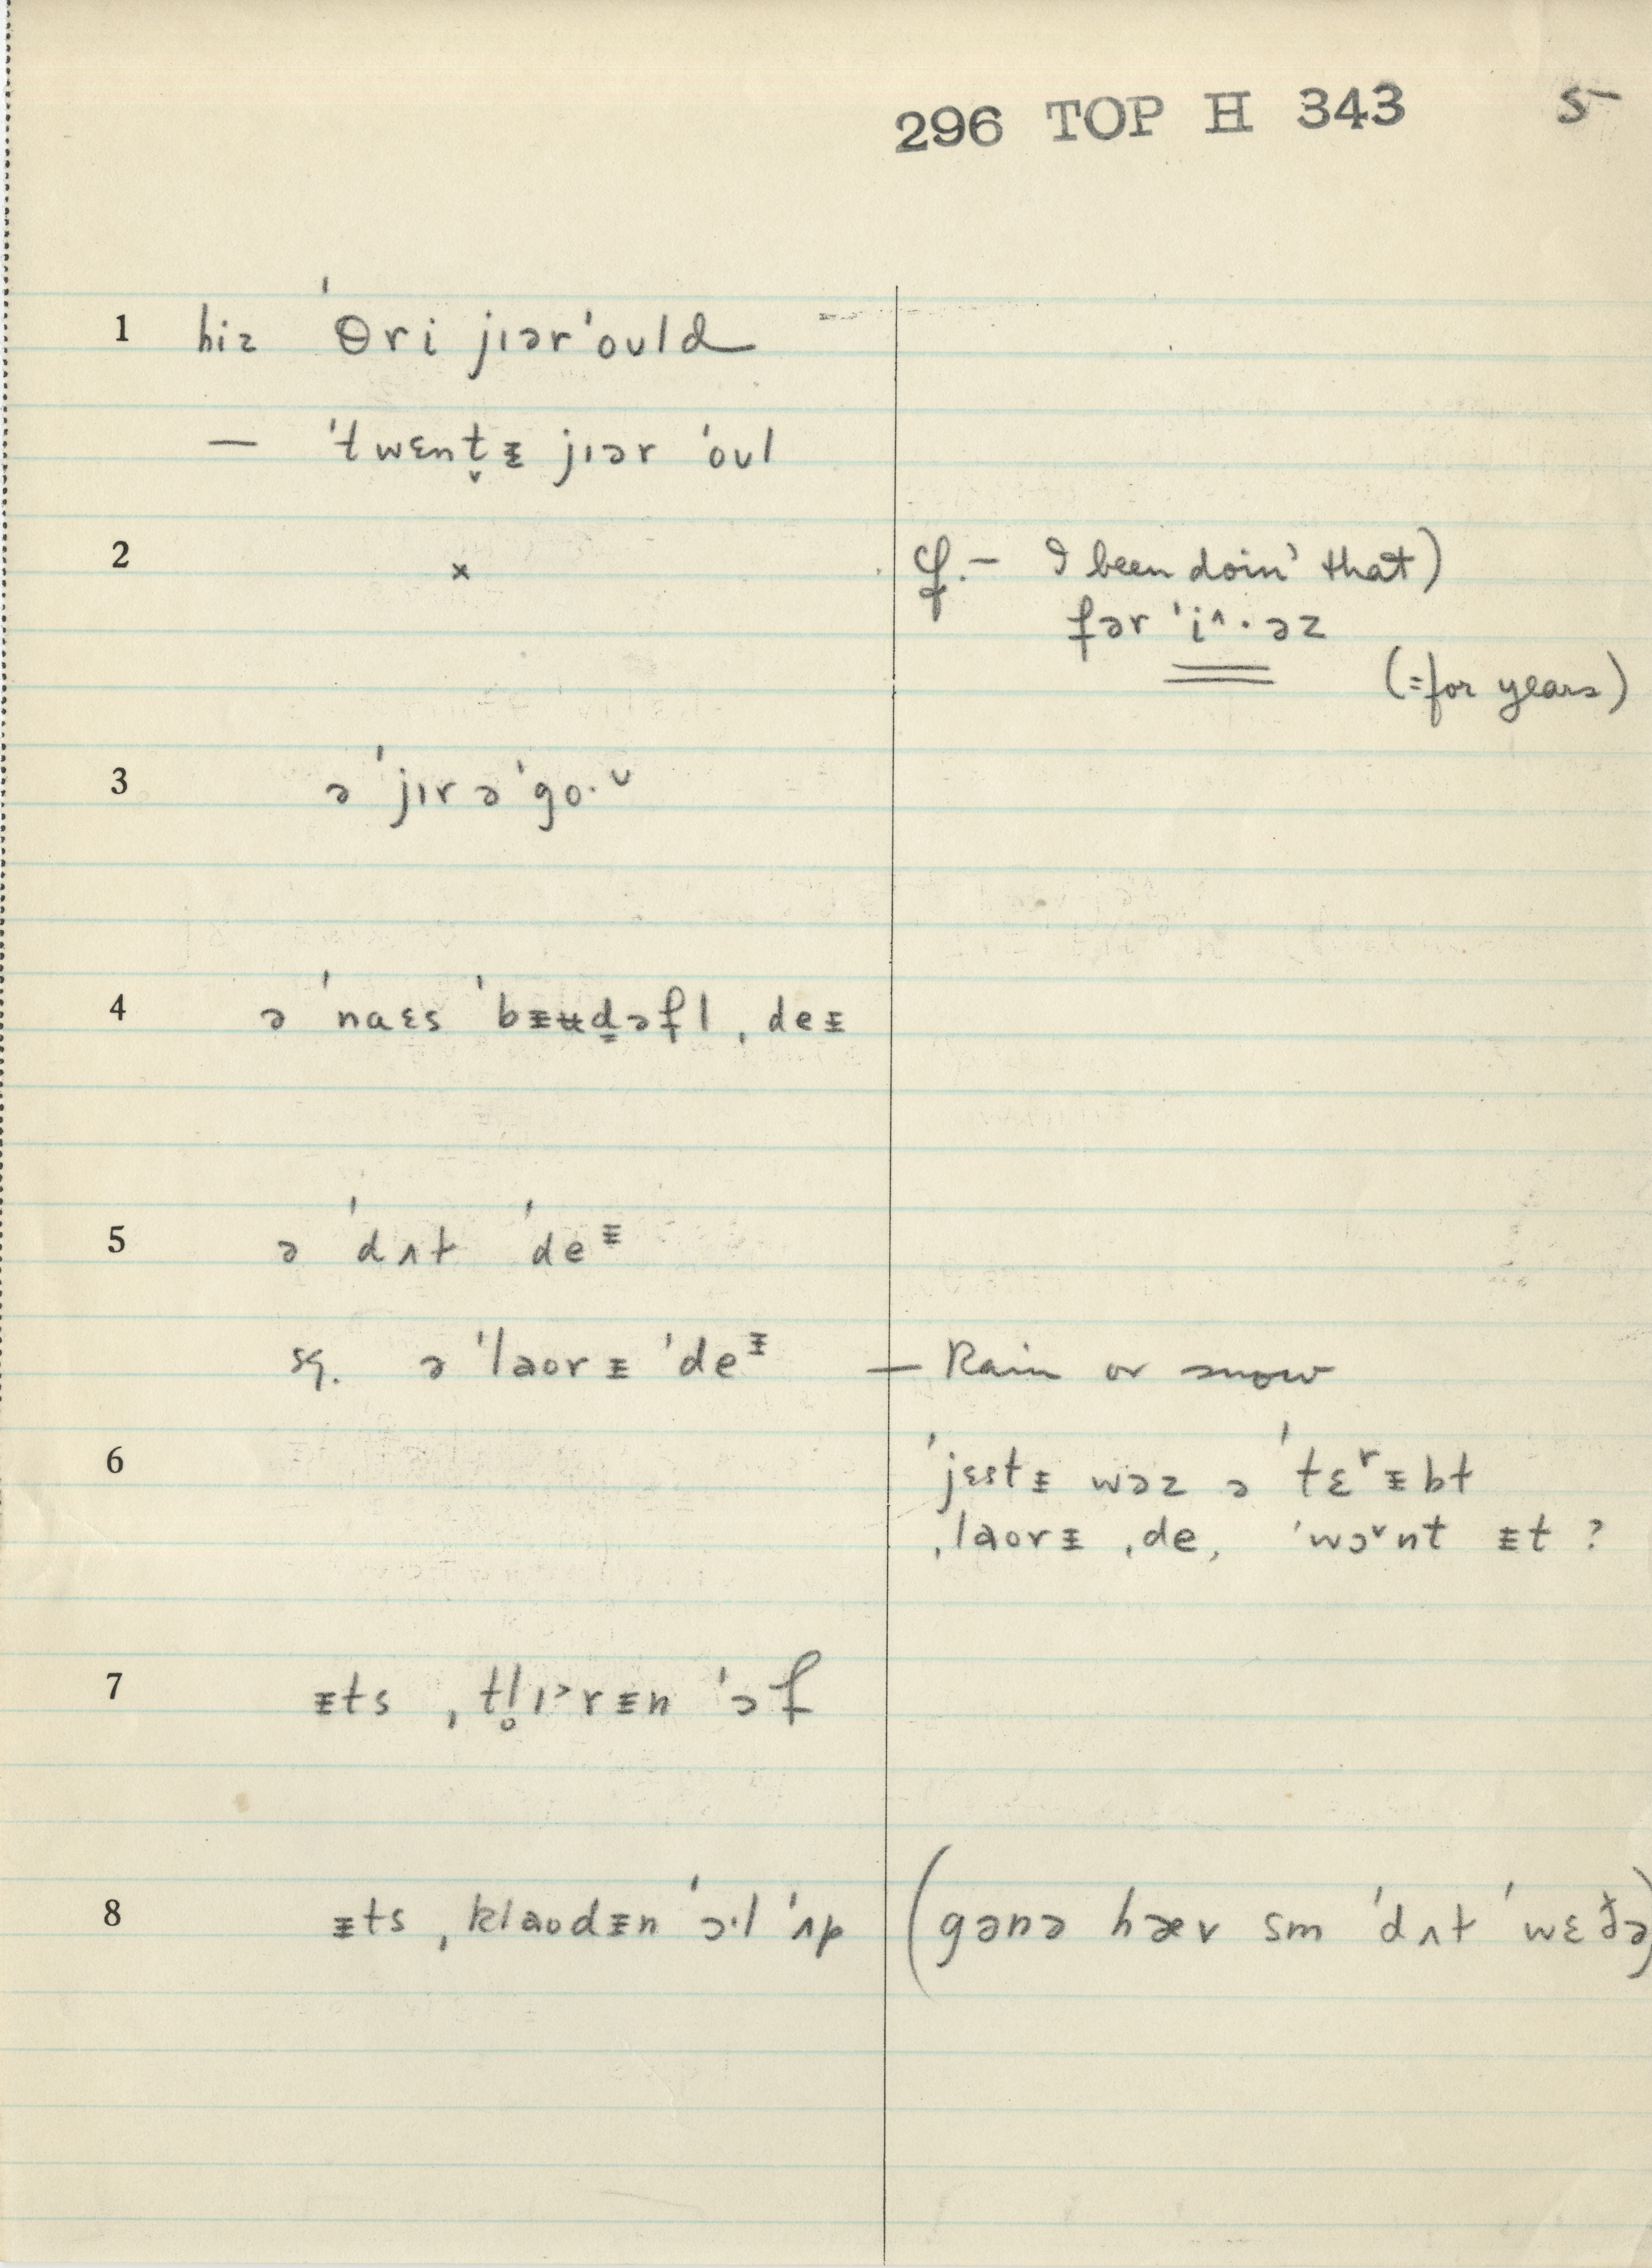 296 TOP H 343 5
1 hiz ˈθri jɪər ˈoʊld
— ˈtwɛnt̬ᵻ jɪər ˈoʊl
2 x cf. — I been doin' that)
fər ˈi^·əz
(=for years)
3 ə ˈjɪr ə ˈgo·ᴗ
4 ə ˈnaɛs ˈbᵻʉd̳əfl ˌdeᵻ
5 ə ˈdʌt ˈdeᵻ
sq. ə ˈlaorᵻ ˈdeᵻ — Rain or snow
6 ˈjɛstᵻ wəz ə ˈtɛʳᵻbt
ˌlaorᵻ ˌde, ˈwɔ˅nt ᵻt ?
7 ᵻts ˌtl̥ɪ˃rᵻn ˈɔf
8 ᵻts ˌklaodᵻn ˈɔ·l ˈʌp (gənə hæv sm ˈdʌt ˈwɛðə)